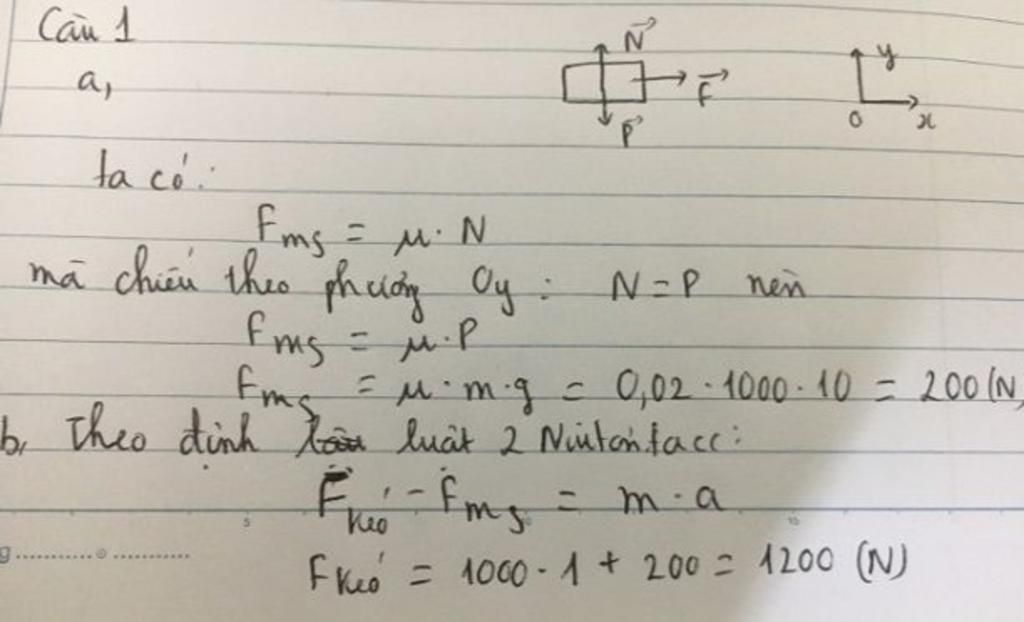 Câu 1
N⃗
F⃗
P⃗
y
0
x
a,
ta có:
Fms = μ. N
mà chiếu theo phương Oy: N = P nên
Fms = μ.P
Fms = μ. m. g = 0,02 . 1000. 10 = 200 (N)
b, Theo định luật 2 Niuton, ta có:
Fkéo - Fms = m. a
Fkéo = 1000 . 1 + 200 = 1200 (N)
5
10